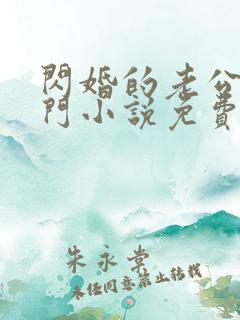 閃婚的老公
門小說免費
朱永棠
未任同意禁止转载